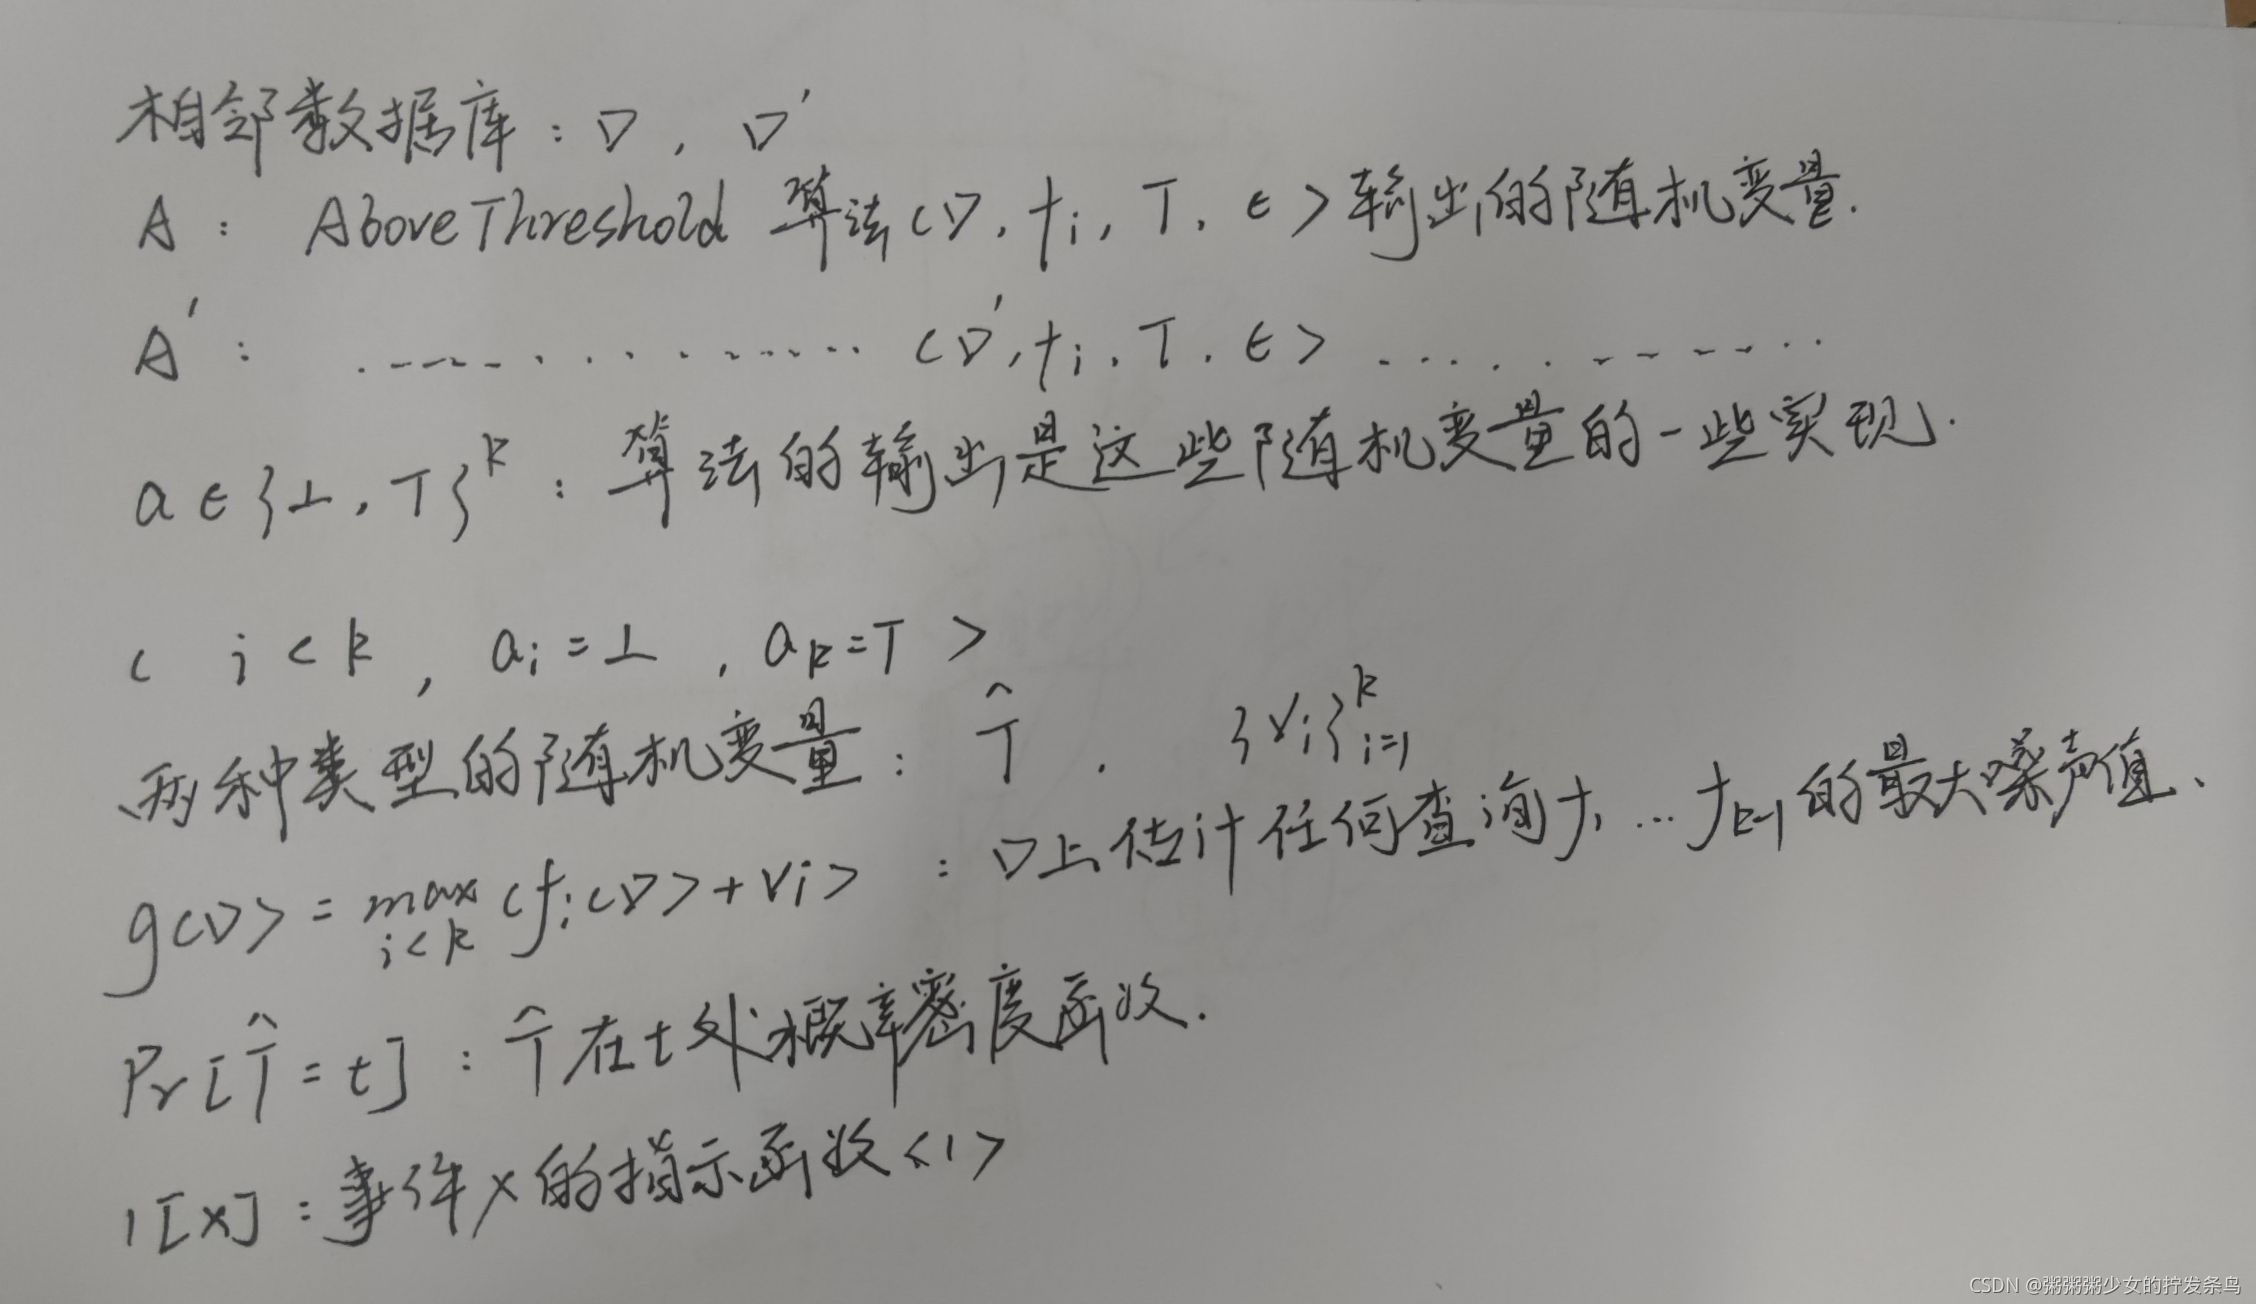 相邻数据库：D，D'
A： AboveThreshold 算法(D, fi, T, ϵ)输出的随机变量.
A'： ..................... (D', fi, T, ϵ) .....................
a∈{⊥, T}^k：算法的输出是这些随机变量的一些实现.
( i<k, ai=⊥, ak=T )
两种类型的随机变量：T̂ . {vi}_{i=1}^k
g(D)=max_{i<k}(fi(D)+vi) ：D上估计任何查询f1...fk-1的最大噪声值、
Pr[T̂=t]：T̂在t处概率密度函数.
1[x]：事件x的指示函数(1)
CSDN @粥粥粥少女的拧发条鸟